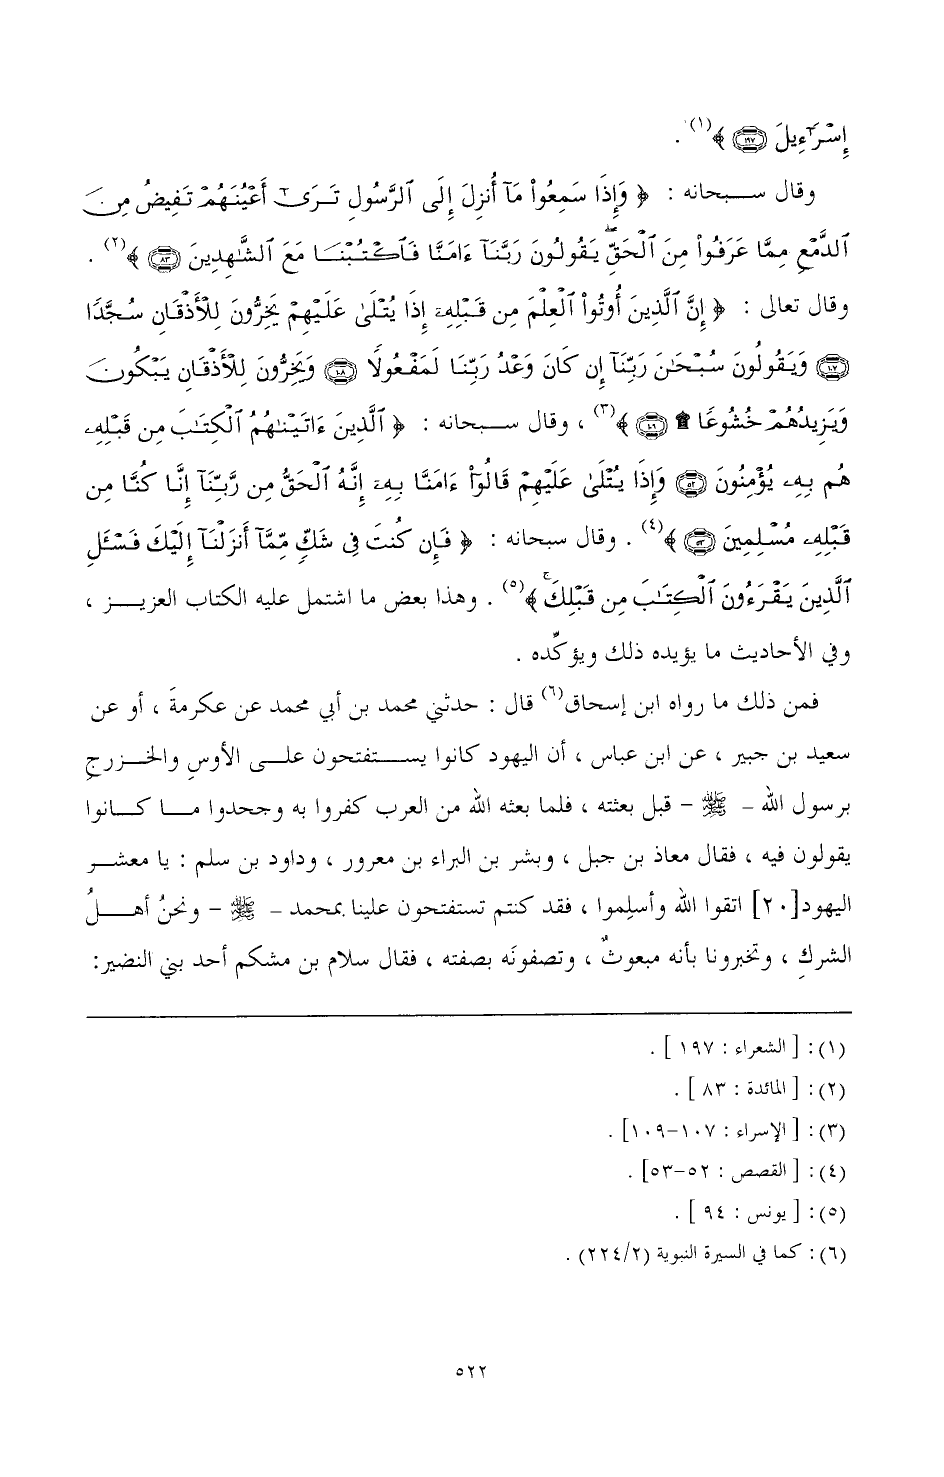 إِسْرَٰٓءِيلَ ﴿١٩٧﴾ ﴾(١) .
وقال سبحانه : ﴿ وَإِذَا سَمِعُوا۟ مَآ أُنزِلَ إِلَى ٱلرَّسُولِ تَرَىٰٓ أَعْيُنَهُمْ تَفِيضُ مِنَ
ٱلدَّمْعِ مِمَّا عَرَفُوا۟ مِنَ ٱلْحَقِّ ۖ يَقُولُونَ رَبَّنَآ ءَامَنَّا فَٱكْتُبْنَا مَعَ ٱلشَّٰهِدِينَ ﴿٨٣﴾ ﴾(٢) .
وقال تعالى : ﴿ إِنَّ ٱلَّذِينَ أُوتُوا۟ ٱلْعِلْمَ مِن قَبْلِهِۦٓ إِذَا يُتْلَىٰ عَلَيْهِمْ يَخِرُّونَ لِلْأَذْقَانِ سُجَّدًا
﴿١٠٧﴾ وَيَقُولُونَ سُبْحَٰنَ رَبِّنَآ إِن كَانَ وَعْدُ رَبِّنَا لَمَفْعُولًا ﴿١٠٨﴾ وَيَخِرُّونَ لِلْأَذْقَانِ يَبْكُونَ
وَيَزِيدُهُمْ خُشُوعًا ۩ ﴿١٠٩﴾ ﴾(٣) ، وقال سبحانه : ﴿ ٱلَّذِينَ ءَاتَيْنَٰهُمُ ٱلْكِتَٰبَ مِن قَبْلِهِۦ
هُم بِهِۦ يُؤْمِنُونَ ﴿٥٢﴾ وَإِذَا يُتْلَىٰ عَلَيْهِمْ قَالُوٓا۟ ءَامَنَّا بِهِۦٓ إِنَّهُ ٱلْحَقُّ مِن رَّبِّنَآ إِنَّا كُنَّا مِن
قَبْلِهِۦ مُسْلِمِينَ ﴿٥٣﴾ ﴾(٤) . وقال سبحانه : ﴿ فَإِن كُنتَ فِى شَكٍّ مِّمَّآ أَنزَلْنَآ إِلَيْكَ فَسْـَٔلِ
ٱلَّذِينَ يَقْرَءُونَ ٱلْكِتَٰبَ مِن قَبْلِكَ ۚ ﴾(٥) . وهذا بعض ما اشتمل عليه الكتاب العزيز ،
وفي الأحاديث ما يؤيده ذلك ويؤكّده .
فمن ذلك ما رواه ابن إسحاق(٦) قال : حدثني محمد بن أبي محمد عن عكرمةَ ، أو عن
سعيد بن جبير ، عن ابن عباس ، أن اليهود كانوا يستفتحون على الأوسِ والخزرجِ
برسول الله – ﷺ – قبل بعثته ، فلما بعثه الله من العرب كفروا به وجحدوا ما كانوا
يقولون فيه ، فقال معاذ بن جبل ، وبشر بن البراء بن معرور ، وداود بن سلم : يا معشر
اليهود[٢٠] اتقوا الله وأسلِموا ، فقد كنتم تستفتحون علينا بمحمد – ﷺ – ونحنُ أهلُ
الشركِ ، وتخبرونا بأنه مبعوثٌ ، وتصفونَه بصفته ، فقال سلام بن مشكم أحد بني النضير:
(١): [ الشعراء : ١٩٧ ] .
(٢): [ المائدة : ٨٣ ] .
(٣): [ الإسراء : ١٠٧-١٠٩] .
(٤): [ القصص : ٥٢-٥٣] .
(٥): [ يونس : ٩٤ ] .
(٦): كما في السيرة النبوية (٢٢٤/٢) .
٥٢٢